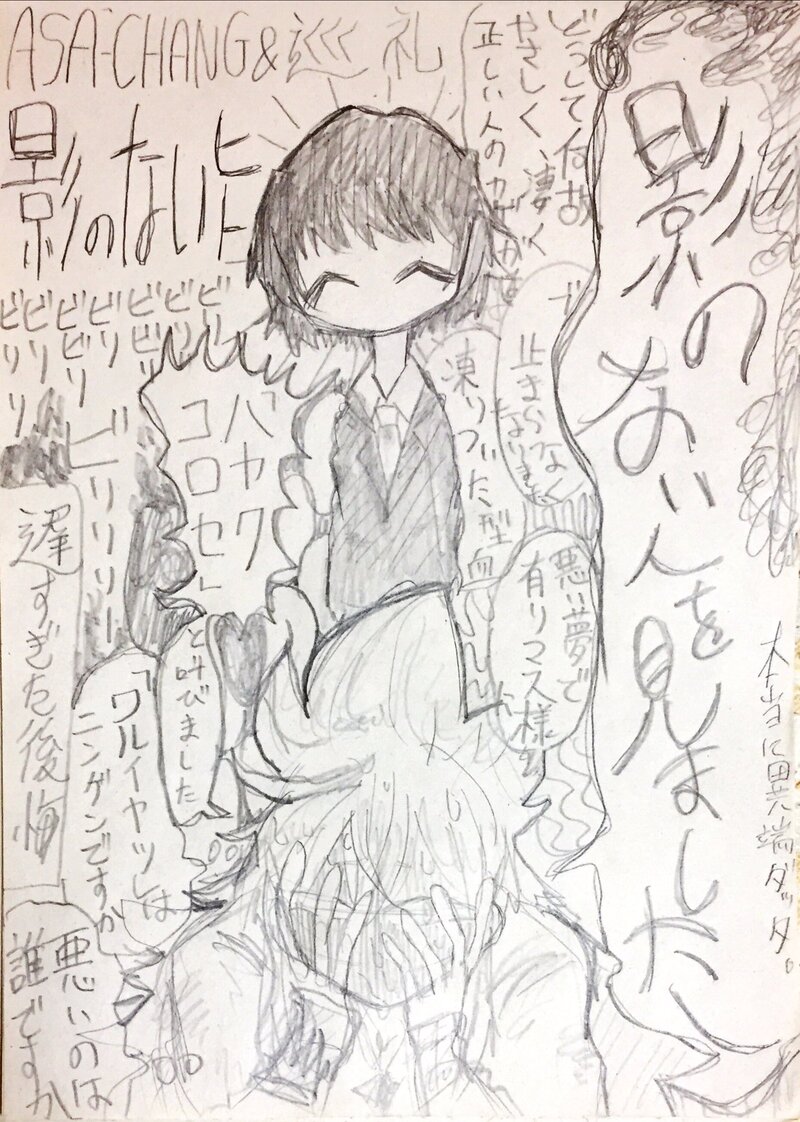 ASA-CHANG&巡礼
影のないヒト
影の
ない人を
見ました
本当に異端ダッタ。
どうして何故
やさしく、凄く
正しい人のカゲがな
で
止まらなく
なりました
凍りついた型
悪い夢で
有リマス様
ハヤク
コロセ」
と叫びました
ビリ
ビビリ
ビリ
ビビリ
ビリリ
ビリリ
ビリリリー
「ワルイヤツらは
ニンゲンですか
遅すぎた後悔
悪いのは
誰ですか